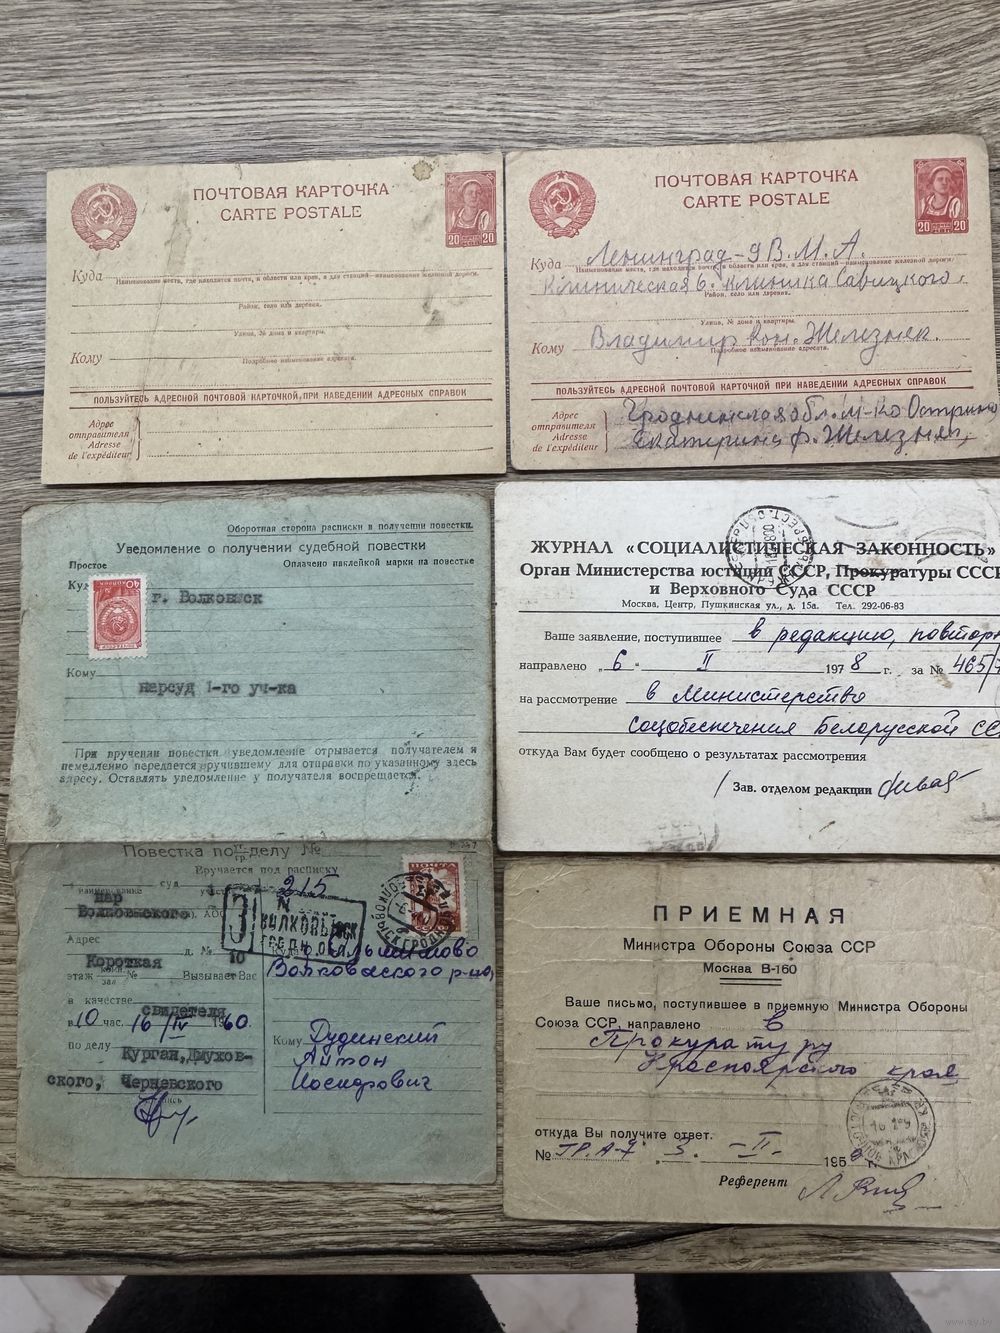 ПОЧТОВАЯ КАРТОЧКА
CARTE POSTALE
20 20
Куда
Наименование места, где находится почта, и области или края, а для станций—наименование железной дороги.
Район, село или деревня.
Улица, № дома и квартиры.
Кому
Подробное наименование адресата.
ПОЛЬЗУЙТЕСЬ АДРЕСНОЙ ПОЧТОВОЙ КАРТОЧКОЙ, ПРИ НАВЕДЕНИИ АДРЕСНЫХ СПРАВОК
Адрес
отправителя
Adresse
de l'expéditeur
ПОЧТОВАЯ КАРТОЧКА
CARTE POSTALE
20 20
Куда Ленинград-9 В.М.А.
Наименование места, где находится почта, и области или края, а для станций—наименование железной дороги.
Клиническая 6. клиника Савицкого,
Район, село или деревня.
Улица, № дома и квартиры.
Кому Владимир кон. Железняк.
Подробное наименование адресата.
ПОЛЬЗУЙТЕСЬ АДРЕСНОЙ ПОЧТОВОЙ КАРТОЧКОЙ ПРИ НАВЕДЕНИИ АДРЕСНЫХ СПРАВОК
Адрес
отправителя
Adresse
de l'expéditeur
Гродненская обл. м-ко Острино
Екатерина ф. Железняк,
Оборотная сторона расписки в получении повестки.
Уведомление о получении судебной повестки
Простое Оплачено наклейкой марки на повестке
40
г. Волковыск
Кому
нарсуд 1-го уч-ка
При вручении повестки уведомление отрывается получателем и
немедленно передается вручившему для отправки по указанному здесь
адресу. Оставлять уведомление у получателя воспрещается.
Повестка по гр. делу №
Вручается под расписку
ПОЧТА
суд
215
нар
Волковыского
З
N
ВОЛКОВЫСК
ГРОДН. ОБЛ.
Адрес д. № Куда
Короткая 10
Волковысского р-на,
этаж № Вызывает Вас
в качестве свидетеля
в 10 час. 16/IV 1960.
по делу Кому Дудинский
Курган, Дмухов-
Антон
ского, Черневского
Иосифович
ЖУРНАЛ «СОЦИАЛИСТИЧЕСКАЯ ЗАКОННОСТЬ»
Орган Министерства юстиции СССР, Прокуратуры СССР
и Верховного Суда СССР
Москва, Центр, Пушкинская ул., д. 15а. Тел. 292-06-83
Ваше заявление, поступившее в редакцию, повторн
направлено „6“ II 1978 г. за № 465/
на рассмотрение в Министерство
соцобеспечения Белорусской СС
откуда Вам будет сообщено о результатах рассмотрения
Зав. отделом редакции
ПРИЕМНАЯ
Министра Обороны Союза ССР
Москва В-160
Ваше письмо, поступившее в приемную Министра Обороны
Союза ССР, направлено в
Прокуратуру
Красноярского края
откуда Вы получите ответ.
№ 3. II. 195
Референт